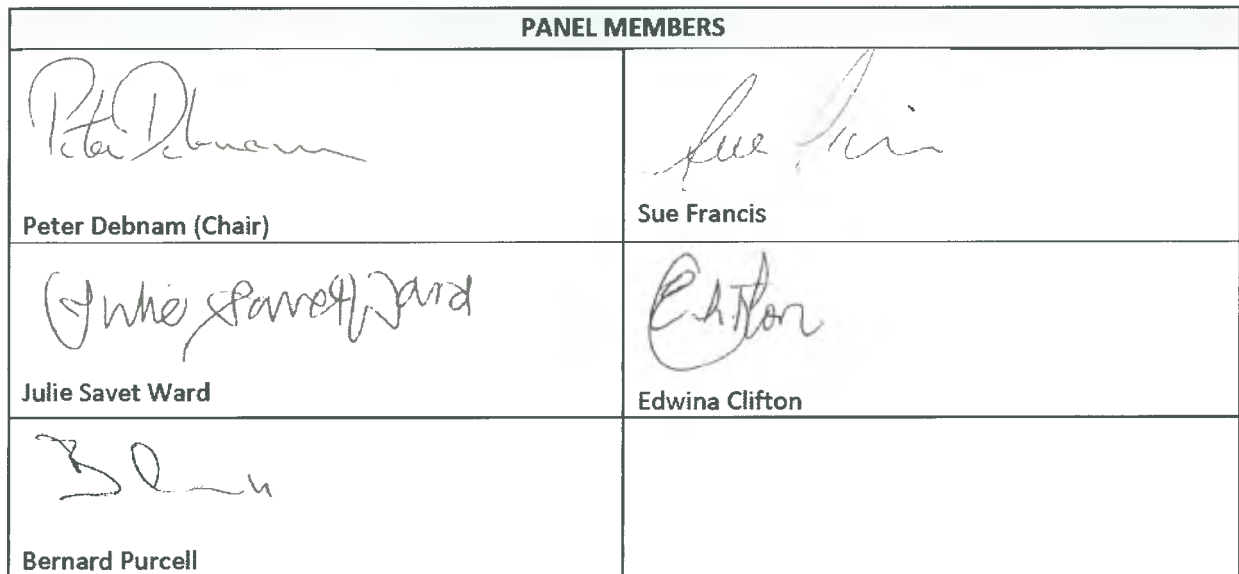 PANEL MEMBERS
Peter Debnam
Sue
Peter Debnam (Chair)
Sue Francis
Julie Savet Ward
Julie Savet Ward
Edwina Clifton
Bernard Purcell